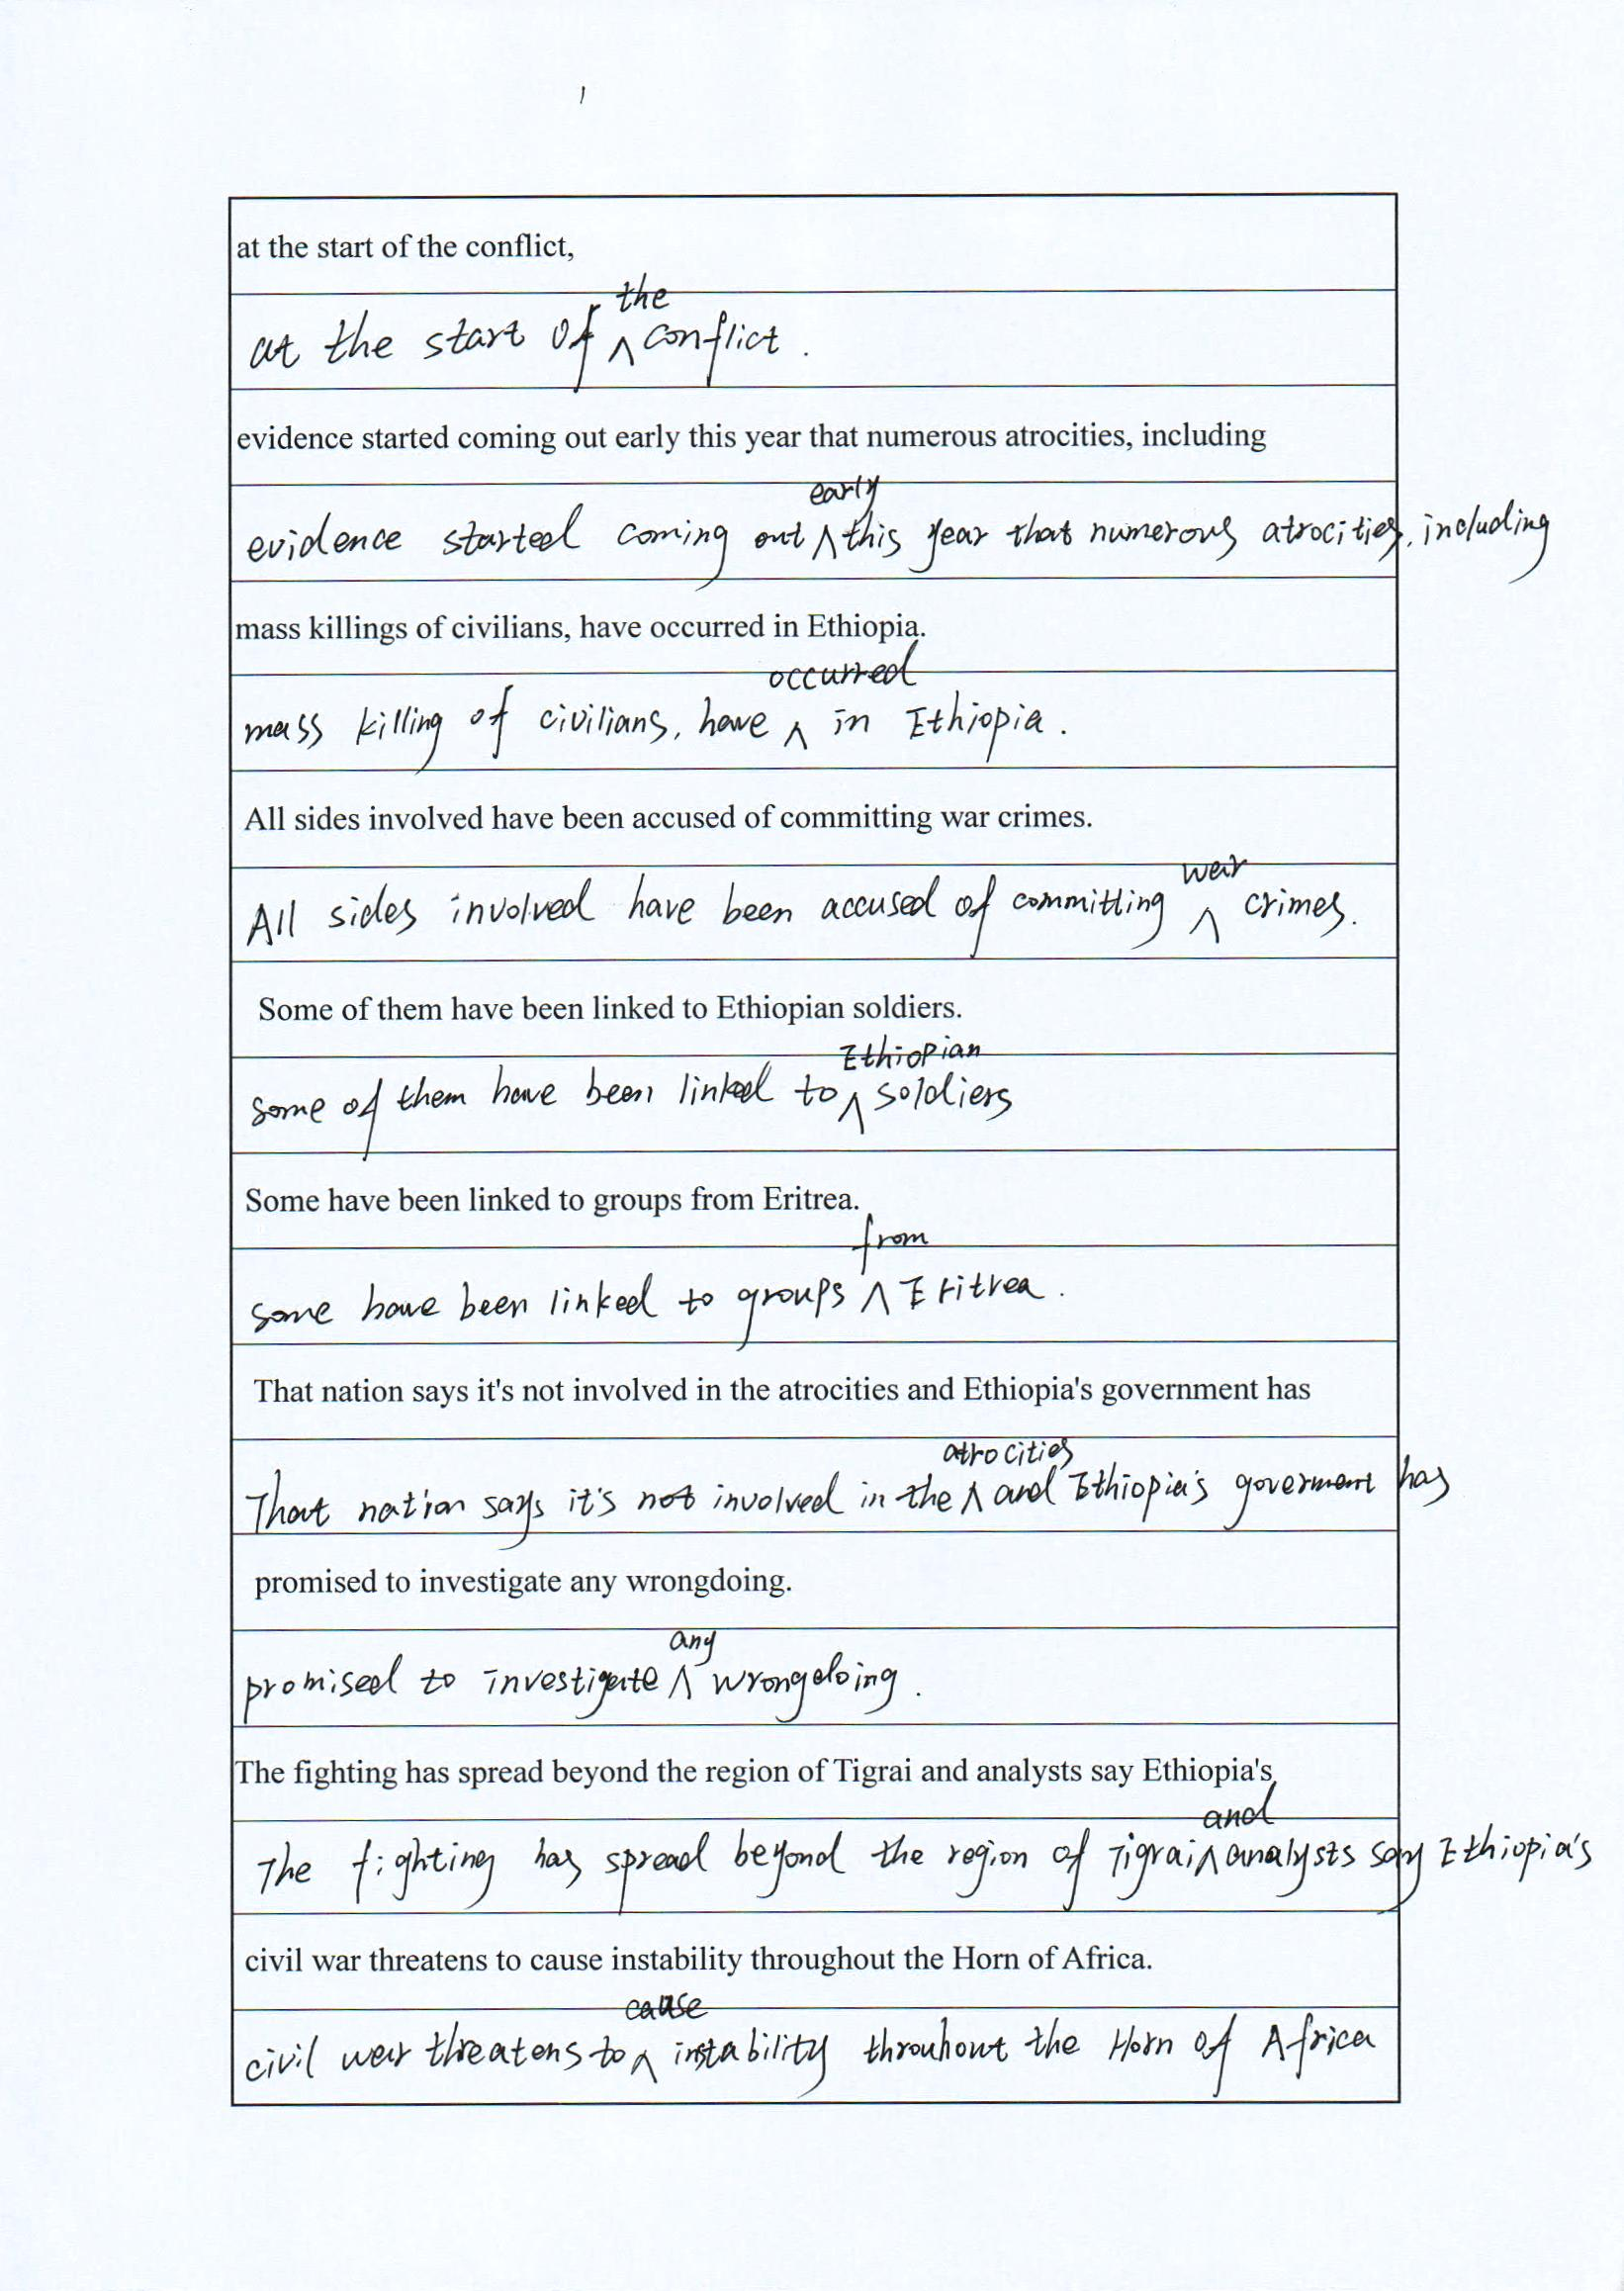 at the start of the conflict,
at the start of ^the conflict.
evidence started coming out early this year that numerous atrocities, including
evidence started coming out ^early this year that numerous atrocities, including
mass killings of civilians, have occurred in Ethiopia.
mass killing of civilians, have ^occurred in Ethiopia.
All sides involved have been accused of committing war crimes.
All sides involved have been accused of committing ^war crimes.
Some of them have been linked to Ethiopian soldiers.
some of them have been linked to ^Ethiopian soldiers
Some have been linked to groups from Eritrea.
some have been linked to groups ^from Eritrea.
That nation says it's not involved in the atrocities and Ethiopia's government has
That nation says it's not involved in the ^atrocities and Ethiopia's goverment has
promised to investigate any wrongdoing.
promised to investigate ^any wrongdoing.
The fighting has spread beyond the region of Tigrai and analysts say Ethiopia's
The fighting has spread beyond the region of Tigrai ^and analysts say Ethiopia's
civil war threatens to cause instability throughout the Horn of Africa.
civil war threatens to ^cause instability throuhout the Horn of Africa